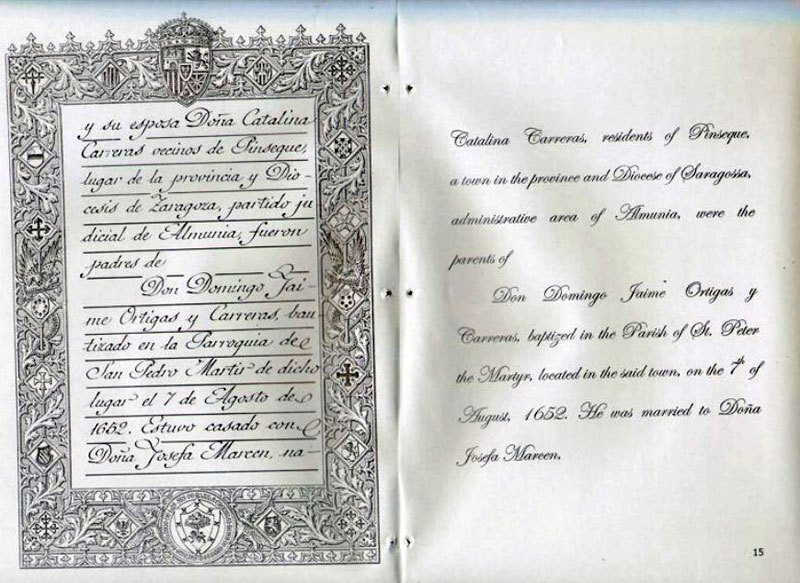 y su esposa Doña Catalina
Carreras vecinos de Pinseque,
lugar de la provincia y Dio-
cesis de Zaragoza, partido ju
dicial de Almunia, fueron
padres de
Don Domingo Jai-
me Ortigas y Carreras, bau
tizado en la Parroquia de
San Pedro Martir de dicho
lugar el 7 de Agosto de
1652. Estuvo casado con
Doña Josefa Mareen, na-
Catalina Carreras, residents of Pinseque,
a town in the province and Diocese of Saragossa,
administrative area of Almunia, were the
parents of
Don Domingo Jaime Ortigas y
Carreras, baptized in the Parish of St. Peter
the Martyr, located in the said town, on the 7th of
August, 1652. He was married to Doña
Josefa Mareen,
15